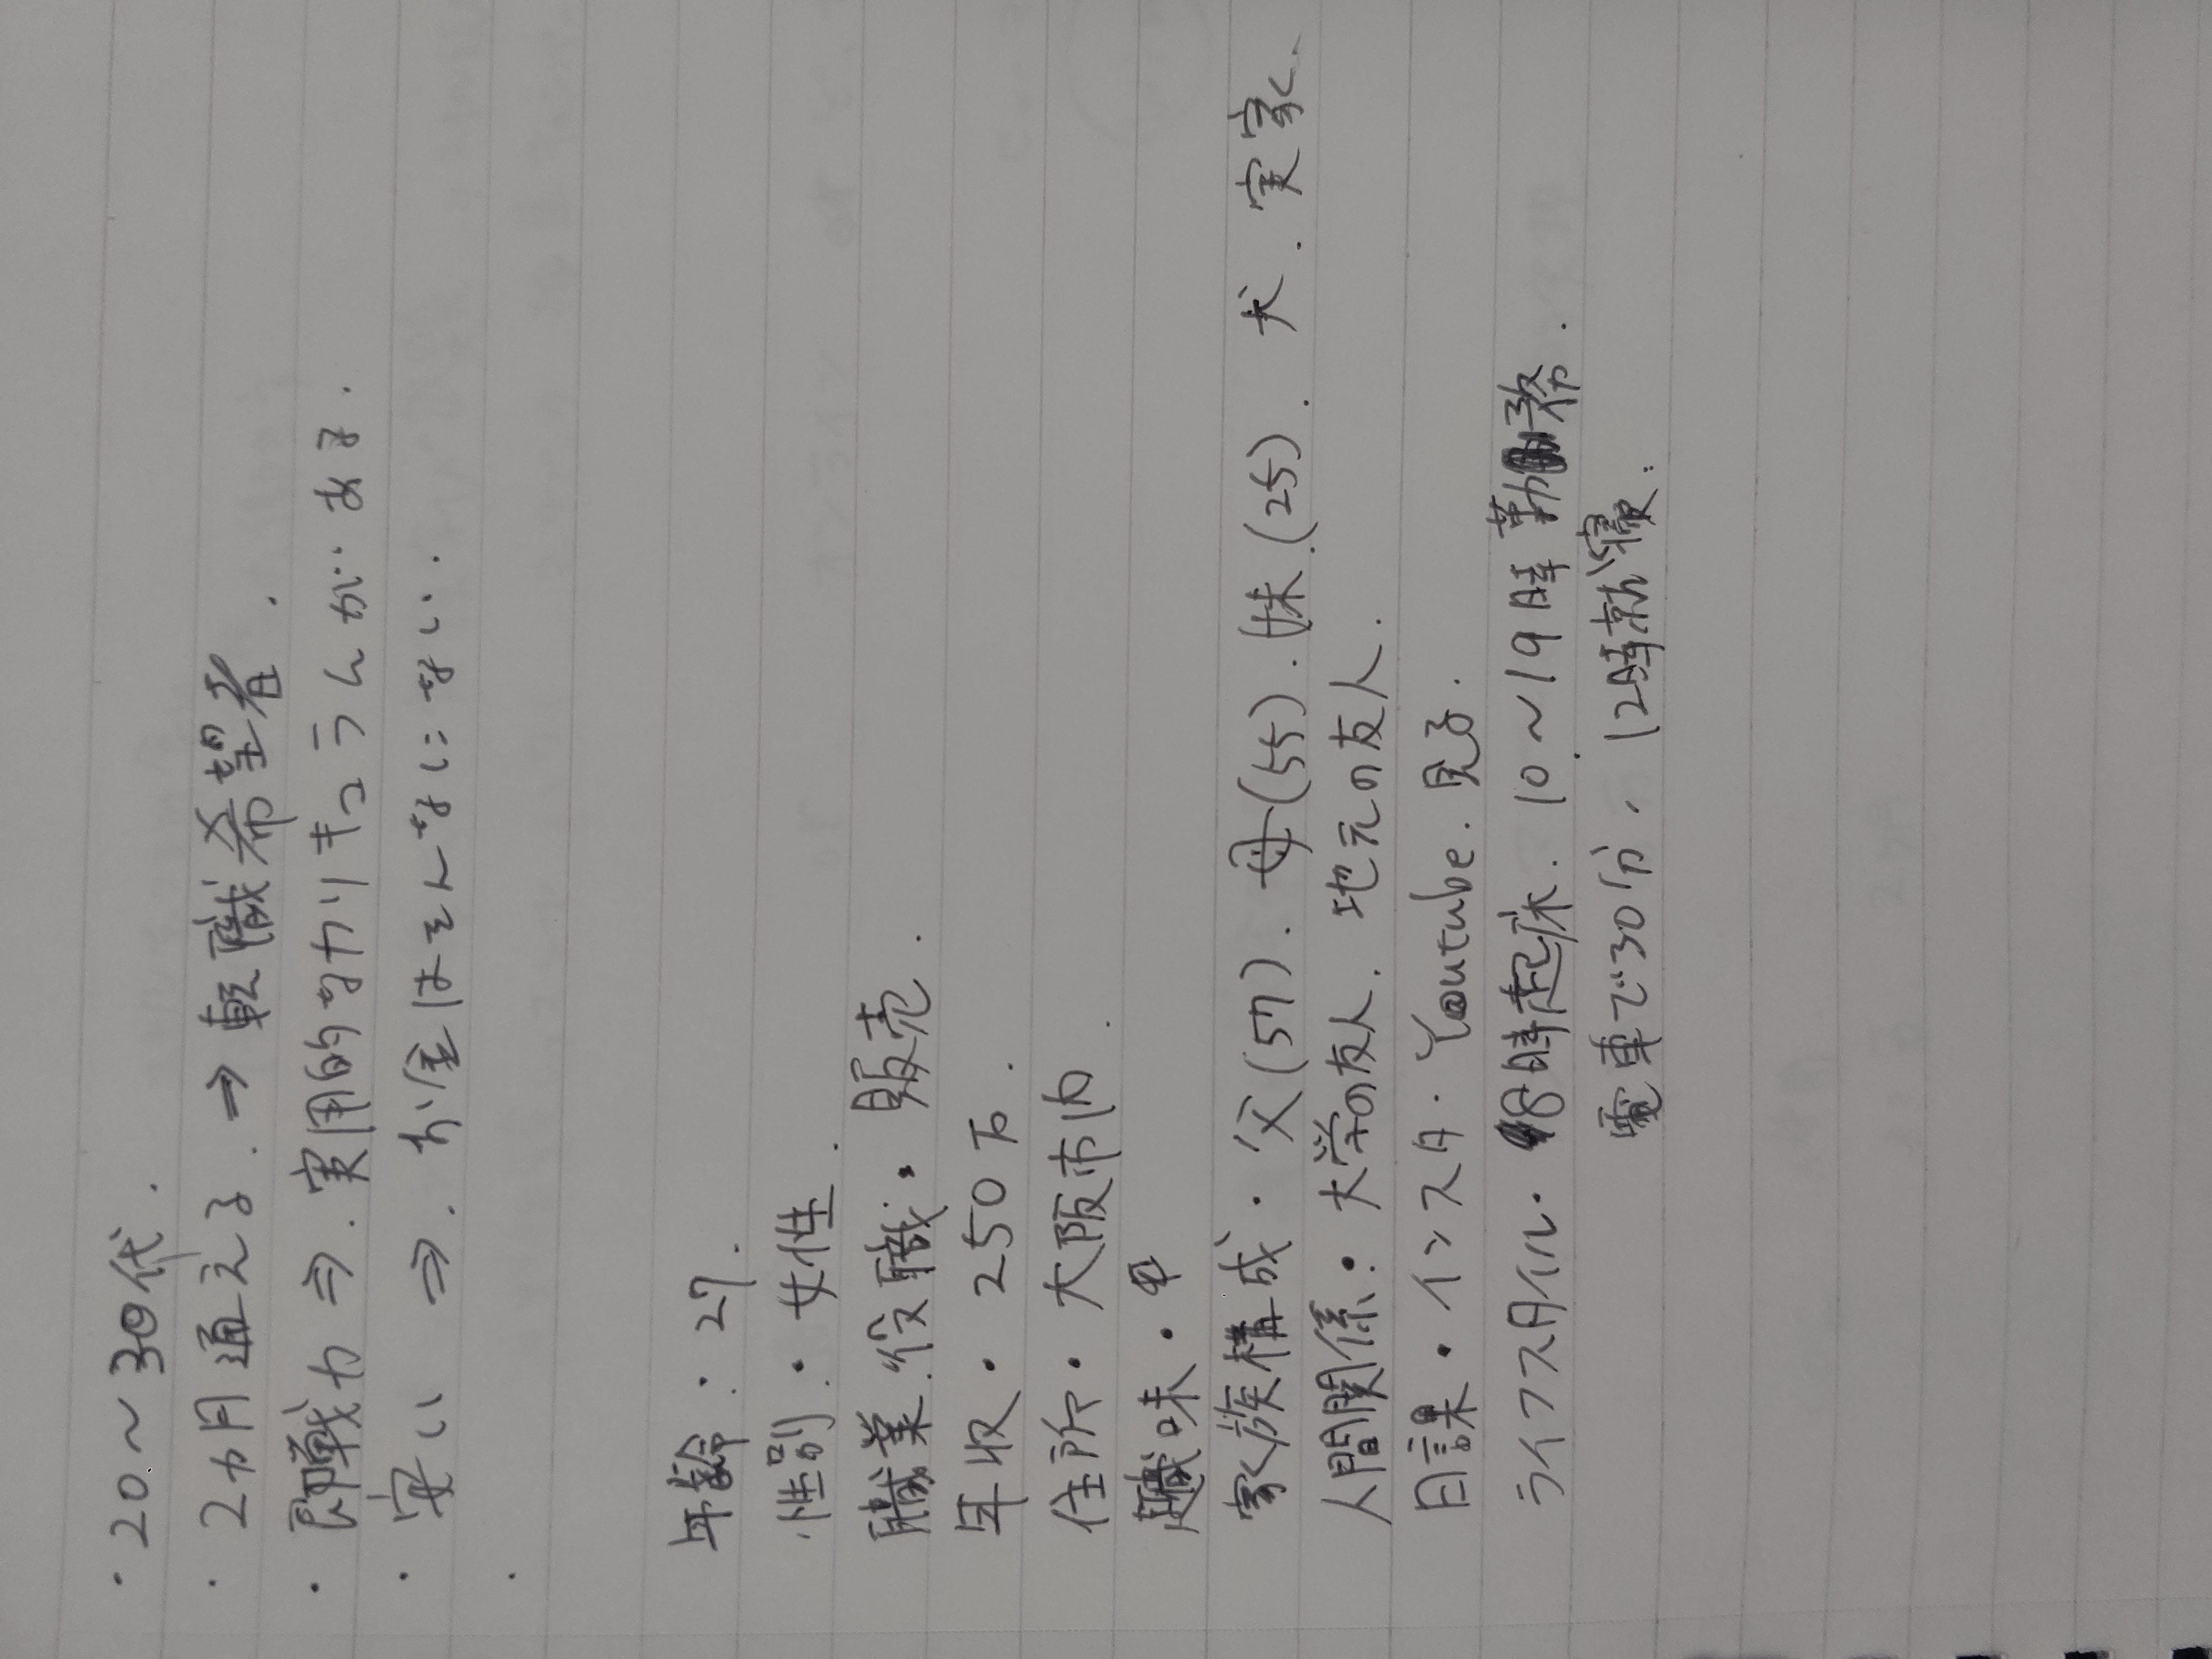 ・20〜30代.
・2ヵ月通える. ⇒ 転職希望者.
・即戦力 ⇒. 実用的なカリキュラムがある.
・安い ⇒. お金はそんなにない.
・
年齢:27.
性別:・女性.
職業.役職:・販売.
年収・250万.
住所・大阪市内.
趣味・
家族構成・父(57).母(55).妹(25).犬.実家.
人間関係:・大学の友人.地元の友人.
日課・インスタ・Youtube.見る.
ライフスタイル・8時起床.10〜19時勤務.
電車で30分、12時就寝.